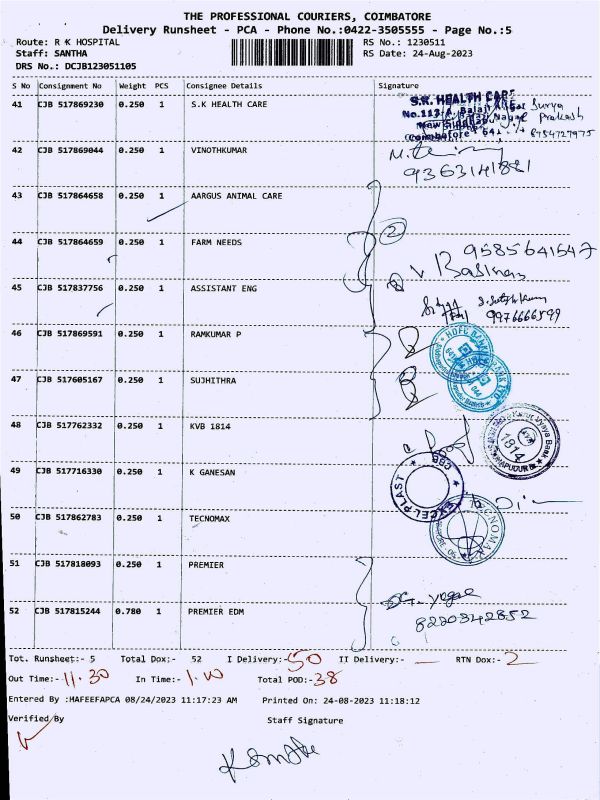 THE PROFESSIONAL COURIERS, COIMBATORE
Delivery Runsheet - PCA - Phone No.:0422-3505555 - Page No.:5
Route: R K HOSPITAL RS No.: 1230511
Staff: SANTHA RS Date: 24-Aug-2023
DRS No.: DCJB123051105
S No Consignment No Weight PCS Consignee Details Signature
41 CJB 517869230 0.250 1 S.K HEALTH CARE
S.R. HEALTH CARE Surya
Prakash
Coimbatore 8754727975
42 CJB 517869044 0.250 1 VINOTHKUMAR
9363141821
43 CJB 517864658 0.250 1 AARGUS ANIMAL CARE
2
44 CJB 517864659 0.250 1 FARM NEEDS
9585641547
45 CJB 517837756 0.250 1 ASSISTANT ENG
9976666599
46 CJB 517869591 0.250 1 RAMKUMAR P
HDFC BANK
47 CJB 517605167 0.250 1 SUJHITHRA
48 CJB 517762332 0.250 1 KVB 1814
1814
49 CJB 517716330 0.250 1 K GANESAN
EXCEL PLAST CBE
50 CJB 517862783 0.250 1 TECNOMAX
TECNOMAX
51 CJB 517818093 0.250 1 PREMIER
52 CJB 517815244 0.780 1 PREMIER EDM
8220342852
Tot. Runsheet:- 5 Total Dox:- 52 I Delivery:- 50 II Delivery:- — RTN Dox:- 2
Out Time:- 11.30 In Time:- 1.10 Total POD:- 38
Entered By :HAFEEFAPCA 08/24/2023 11:17:23 AM Printed On: 24-08-2023 11:18:12
Verified By Staff Signature